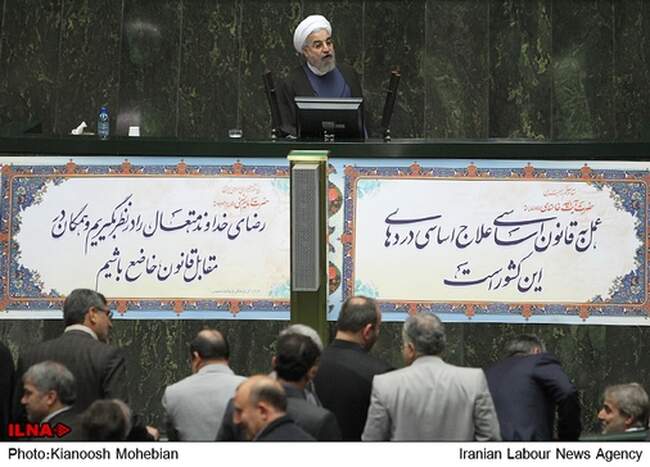 عمل به قانون اساسی علاج اساسی دردهای
این کشور است
رضای خداوند متعال را در نظر بگیریم و همگان در
مقابل قانون خاضع باشیم
ILNA
Photo:Kianoosh Mohebian
Iranian Labour News Agency